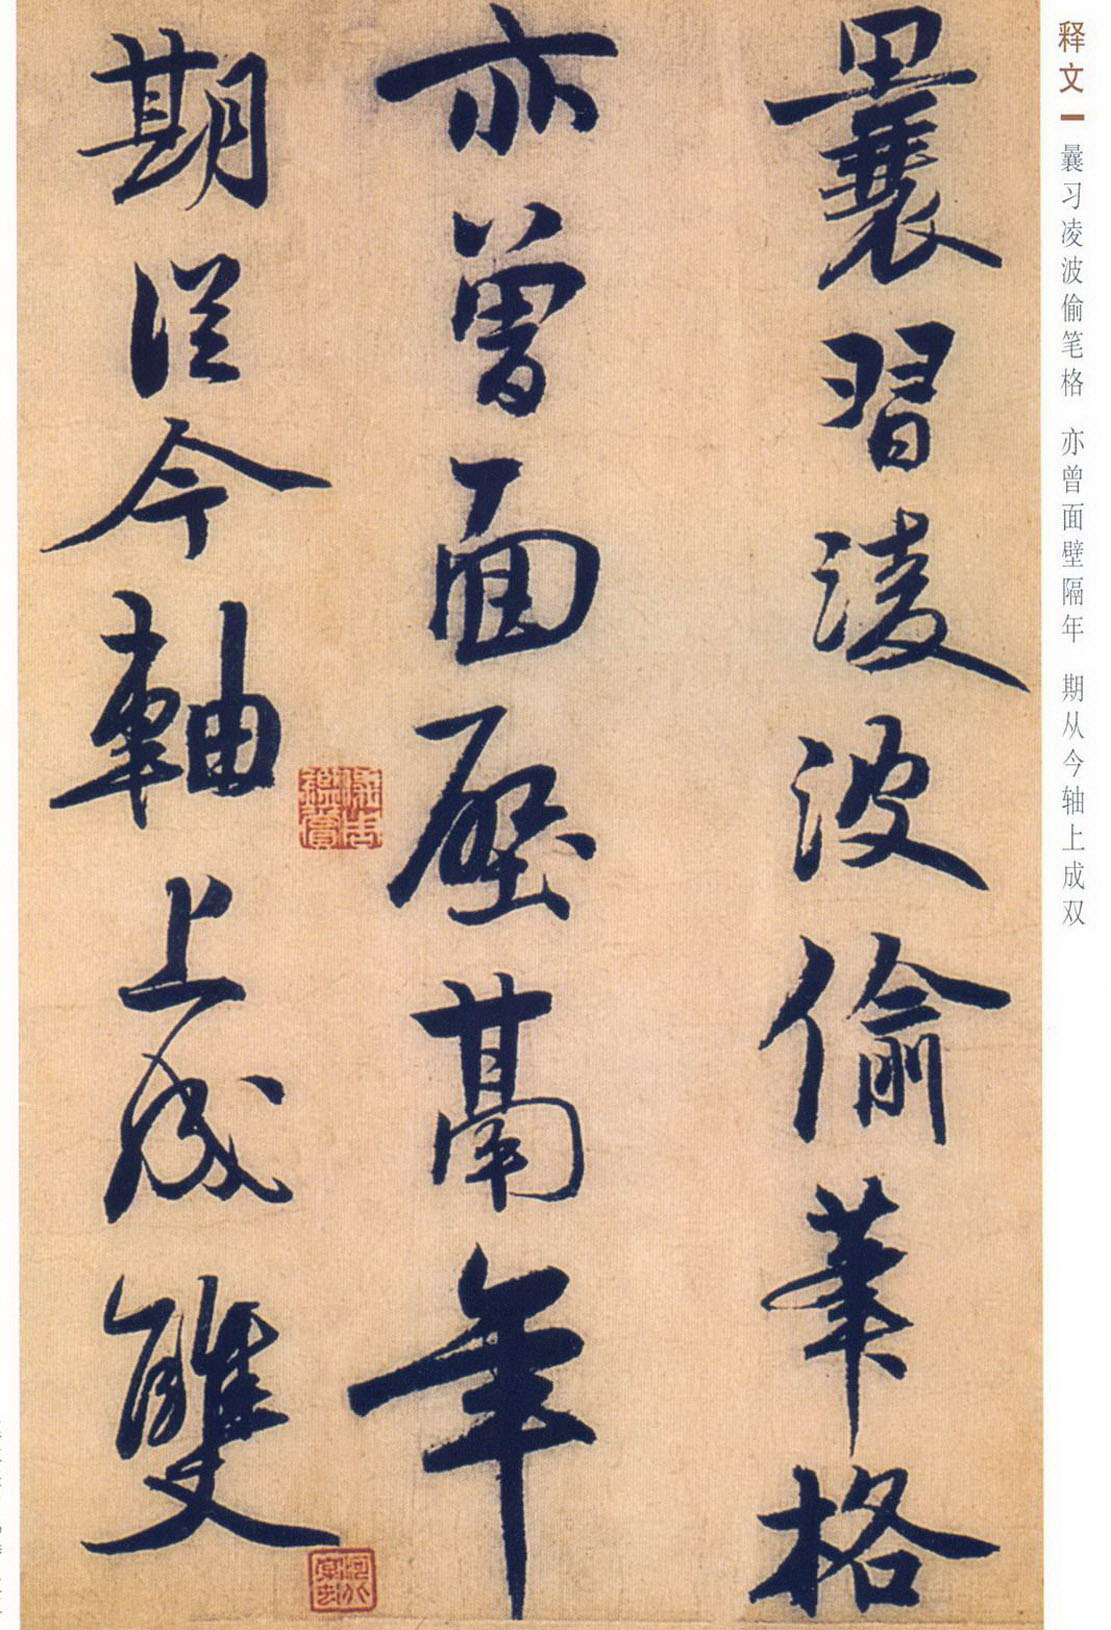 释文 曩习凌波偷笔格 亦曾面壁隔年 期从今轴上成双
曩習淩波偷筆格
亦曾面壁鬲年
期從今軸上成雙